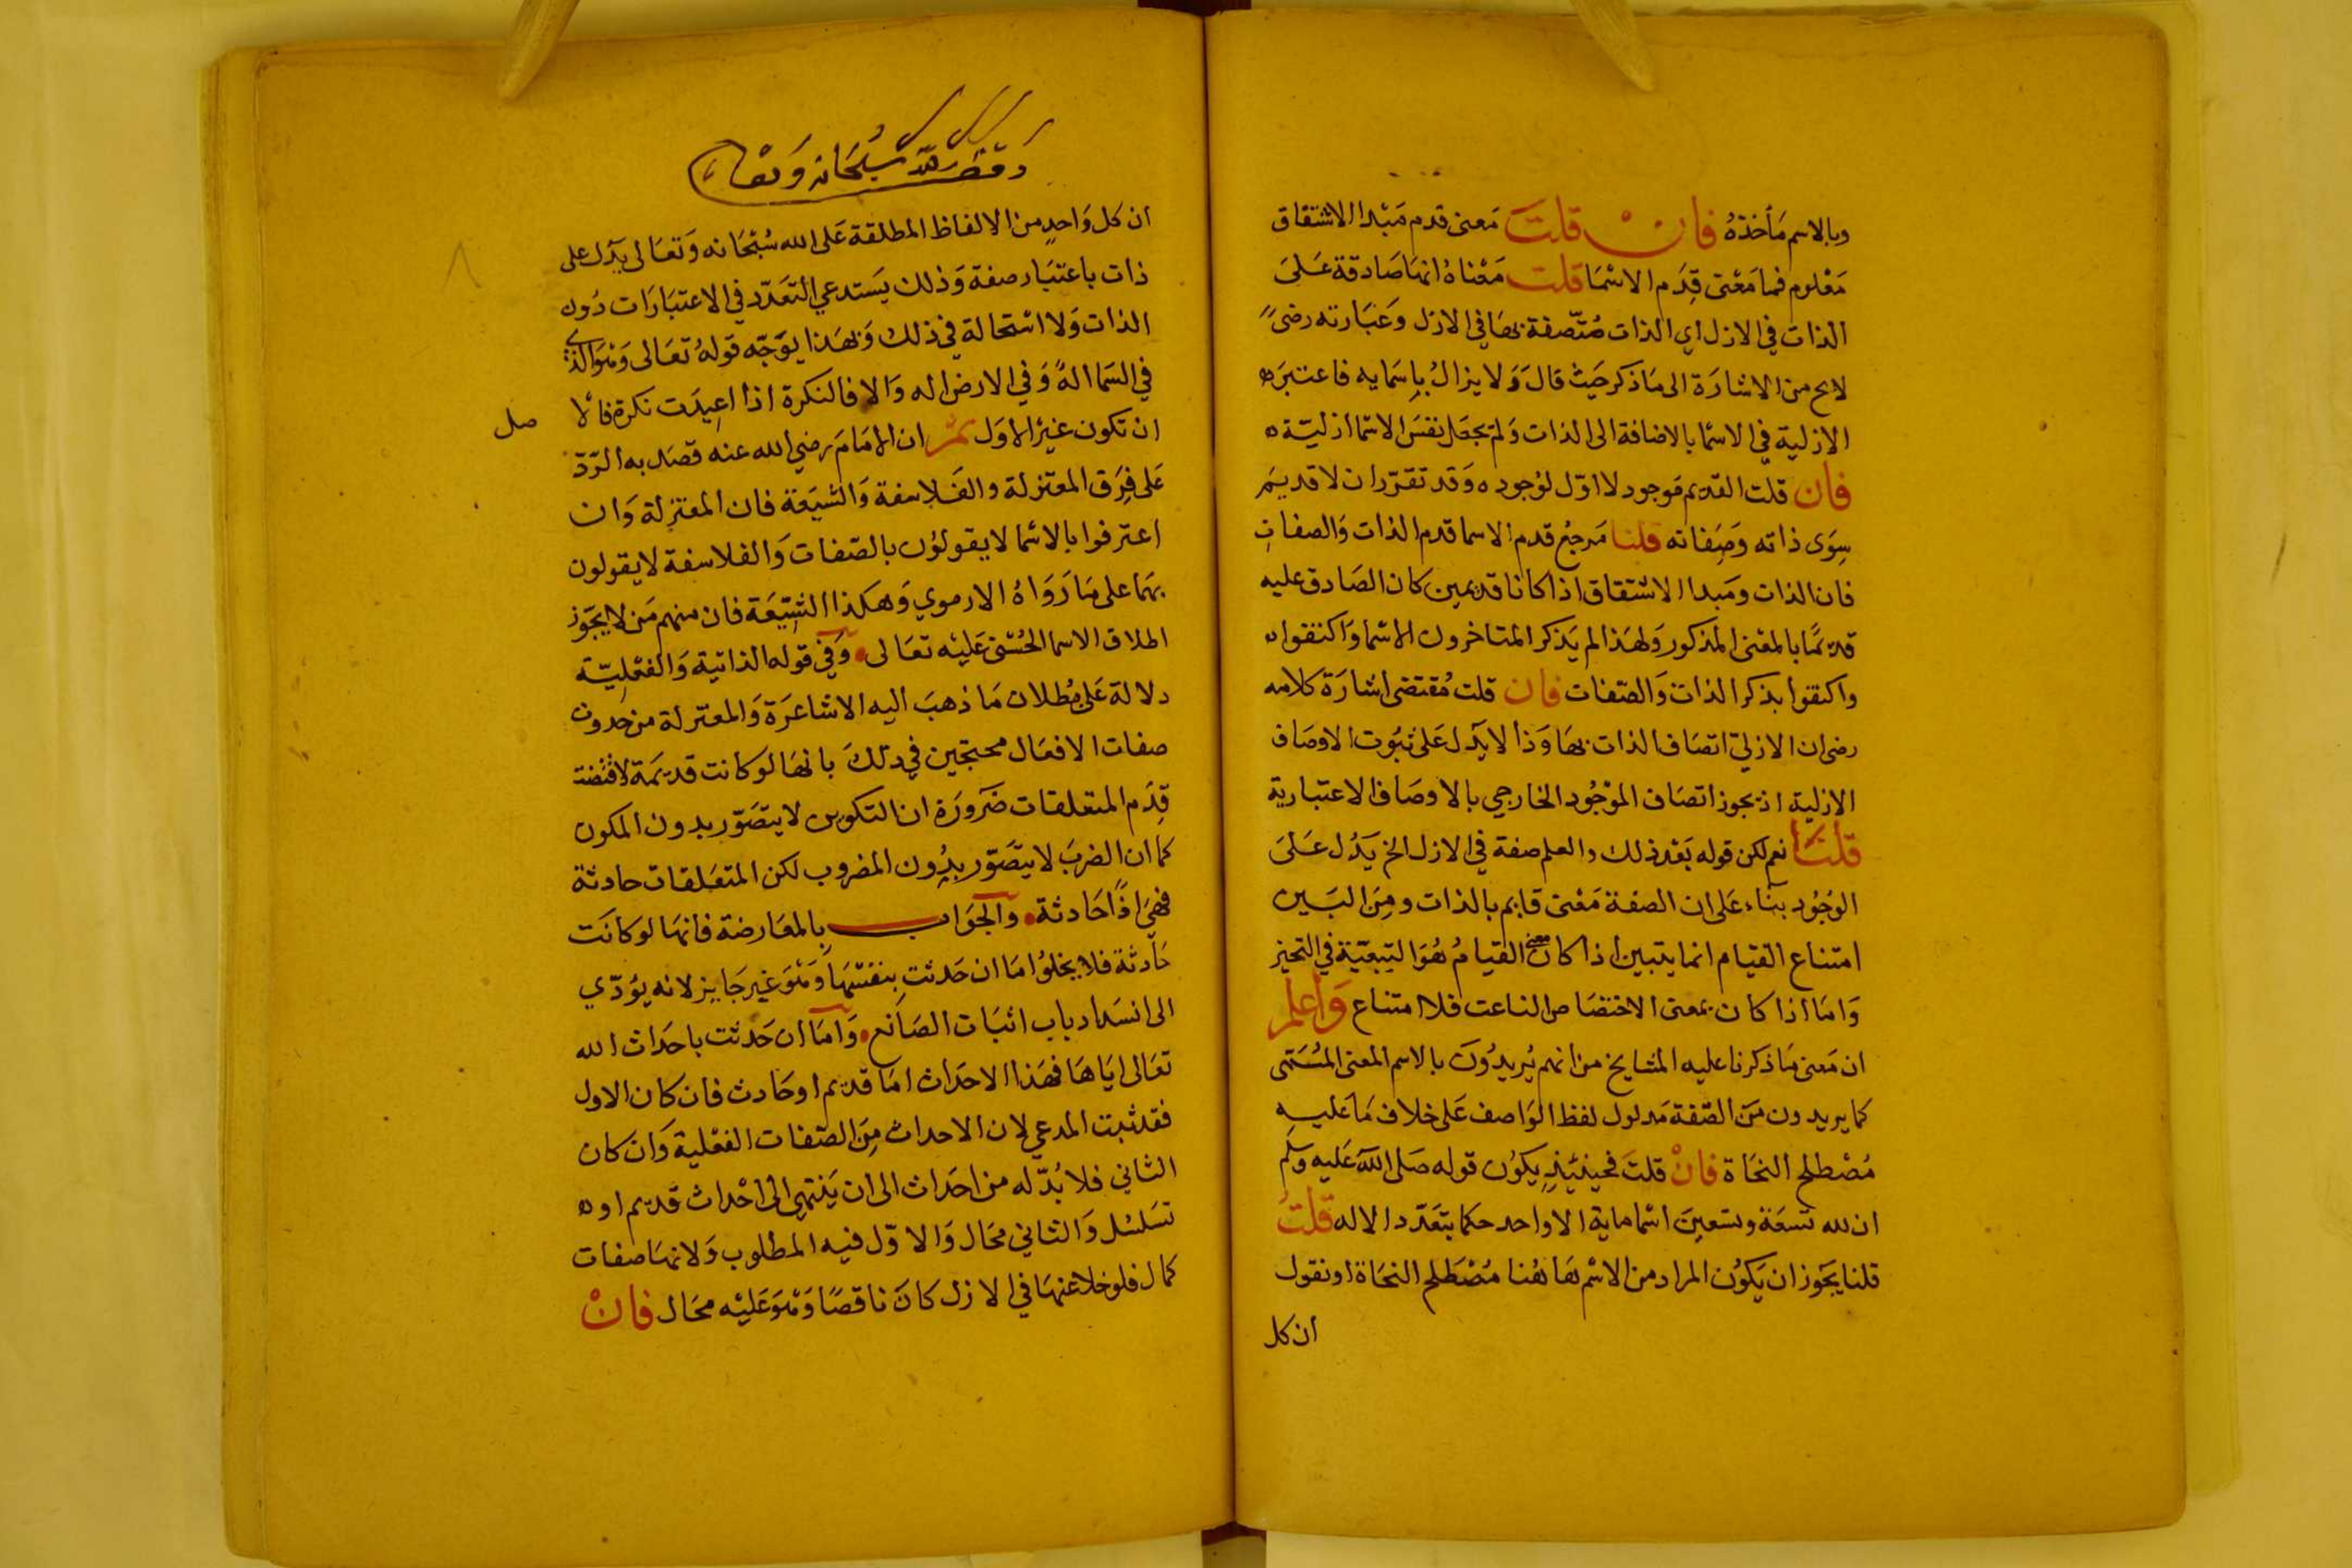 وبالاسم مَأخذهُ فان قلتَ مَعنى قدم مَبْدا الاشتقاق
مَعْلوم فما مَعْنى قِدَم الاسْمَا قلت مَعْناهُ انهَا صَادقة عَلىَ
الذات في الازل اي الذات مُتّصفة بهَا في الازل وعَبَارته رضى
لاىح من الاشارَة الى مَا ذكر حَيث قالَ وَلا يزالُ بِاسَمايه فاعتبرَ
الازلية في الاسْمَا بالاضافة الى الذات وَلم يجعَل نفسَ الاسْمَا ازليّة
فان قلت القديم مَوجود لا اوّل لوُجوده وَقد تقرّر ان لا قديمَ
سِوَى ذاته وَصِفاته قلنا مَرجعُ قدم الاسما قدم الذات وَالصفاتِ
فان الذات ومَبدا الاشتقاق اذا كانا قديمين كان الصَادق عليه
قديمًا بالمعْنى المذكور وَلهَذا لم يَذكر المتاخرون الاسْما وَاكتفوا
واكتفوا بذكر الذات وَالصّفات فان قلت مُقتضى اشارَة كلامه
رضى ان الازليّ اتصَاف الذات بهَا وَذا لا يَدل عَلى ثبُوت الاوصَاف
الازلية اذ يجوز اتصَاف الموْجُود الخارجي بالاوصَاف الاعتبارية
قلتَا نعم لكن قوله بَعْد ذلك والعلم صفة في الازل الخ يَدُل عَلىَ
الوجُود بنَاء عَلى ان الصفة مَعْنى قايم بالذات ومِنَ البَين
امتناع القيام انما يتبين اذا كان معنى القيامُ هُوَ التَبعَيّة في التحيز
وَامَا اذا كان بمعنى الاختصَاص الناعت فلا امتناع وَاعلم
ان مَعنى مَا ذكرنا عليه المشايخ من انهم يُريدُونَ بالاسم المعنى المسَمّى
كما يريدون مِنَ الصّفة مَدلول لفظ الوَاصف عَلى خلاف مَا عَليه
مُصْطلح النحَاة فانْ قلتَ فحينئِذٍ يكونُ قوله صَلى الله عَليه وسَلم
ان لله تسعَة وتسعينَ اسْما ماية الا واحد حكما بتعَدّد الاله قلتُ
قلنا يَجَوز ان يَكونُ المراد من الاسْم هَا هُنا مُصْطَلح النحَاة او نقول
ان كل
وقف لله سُبْحَانه وَتعَالى
ان كل وَاحدٍ من الالفاظ المطلقة عَلى الله سُبْحَانه وَتعَالى يدَل على
ذات باعتبَار صفة وَذلك يَستدعي التعَدّد في الاعتبارَات دُون
الذات وَلا استحالة في ذلك وَبهَذا يوَجّه قولهُ تعَالى وَهْوَ الذى
في السَما الهٌ وَفي الارض اله وَالا فالنكرة اذا اعِيدَت نكرة فالا
صل
ان تكون غيرُ الاوَل ثم ان الامَامَ رضي الله عنه قصَد به الرّدّ
عَلى فِرَق المعتزلة والفَلاسفة وَالشيَعَة فان المعْتزلة وَان
اعترفوا بالاسْما لا يقولوُن بالصّفات وَالفلاسفة لا يقولون
بهمَا على مَا رَوَاهُ الارموي وَهكذا الشِيّعَة فان منهم مَن لا يجَوّز
اطلاق الاسما الحُسْنى عَليْه تعَالى وَفي قوله الذاتية وَالفعْليّة
دلالة عَلى بُطلان مَا ذهبَ اليه الاشاعرَة وَالمعتزلة من حدوث
صفات الافعَال محتجّين في ذلكَ بانهَا لو كانت قديمَة لاقتضت
قِدَم المتعلقات ضَرورَة ان التكوين لا يتصَوّر بدون المكون
كما ان الضربَ لا يتَصَوّر بدُون المضروب لكن المتعَلقات حادثة
فهيَ اذًا حَادثة والجَوَاب بِالمعَارضة فانهَا لو كانَت
حَادثة فلا يخلوُ امَا ان حَدثت بنفسْهَا وَهْوَ غير جَايز لانه يؤدّي
الى انسَداد باب اثبَات الصَانع وَامَا ان حَدثت باحَداث الله
تعَالى ايَاهَا فهَذا الاحدَاث امَا قديم او حَادث فان كان الاول
فقد ثبت المدعي لان الاحداث مِنَ الصّفات الفعْلية وَان كان
الثاني فلا بُدّ له من احَداث الى ان يَنتهي الى احْداث قديم او
تسَلسُل وَالثاني محَال وَالاوّل فيه المطلوب وَلانهَا صفات
كمال فلو خلا عنهَا في الازل كانَ ناقصًا وَهْوَ عَليْه محَال فانْ